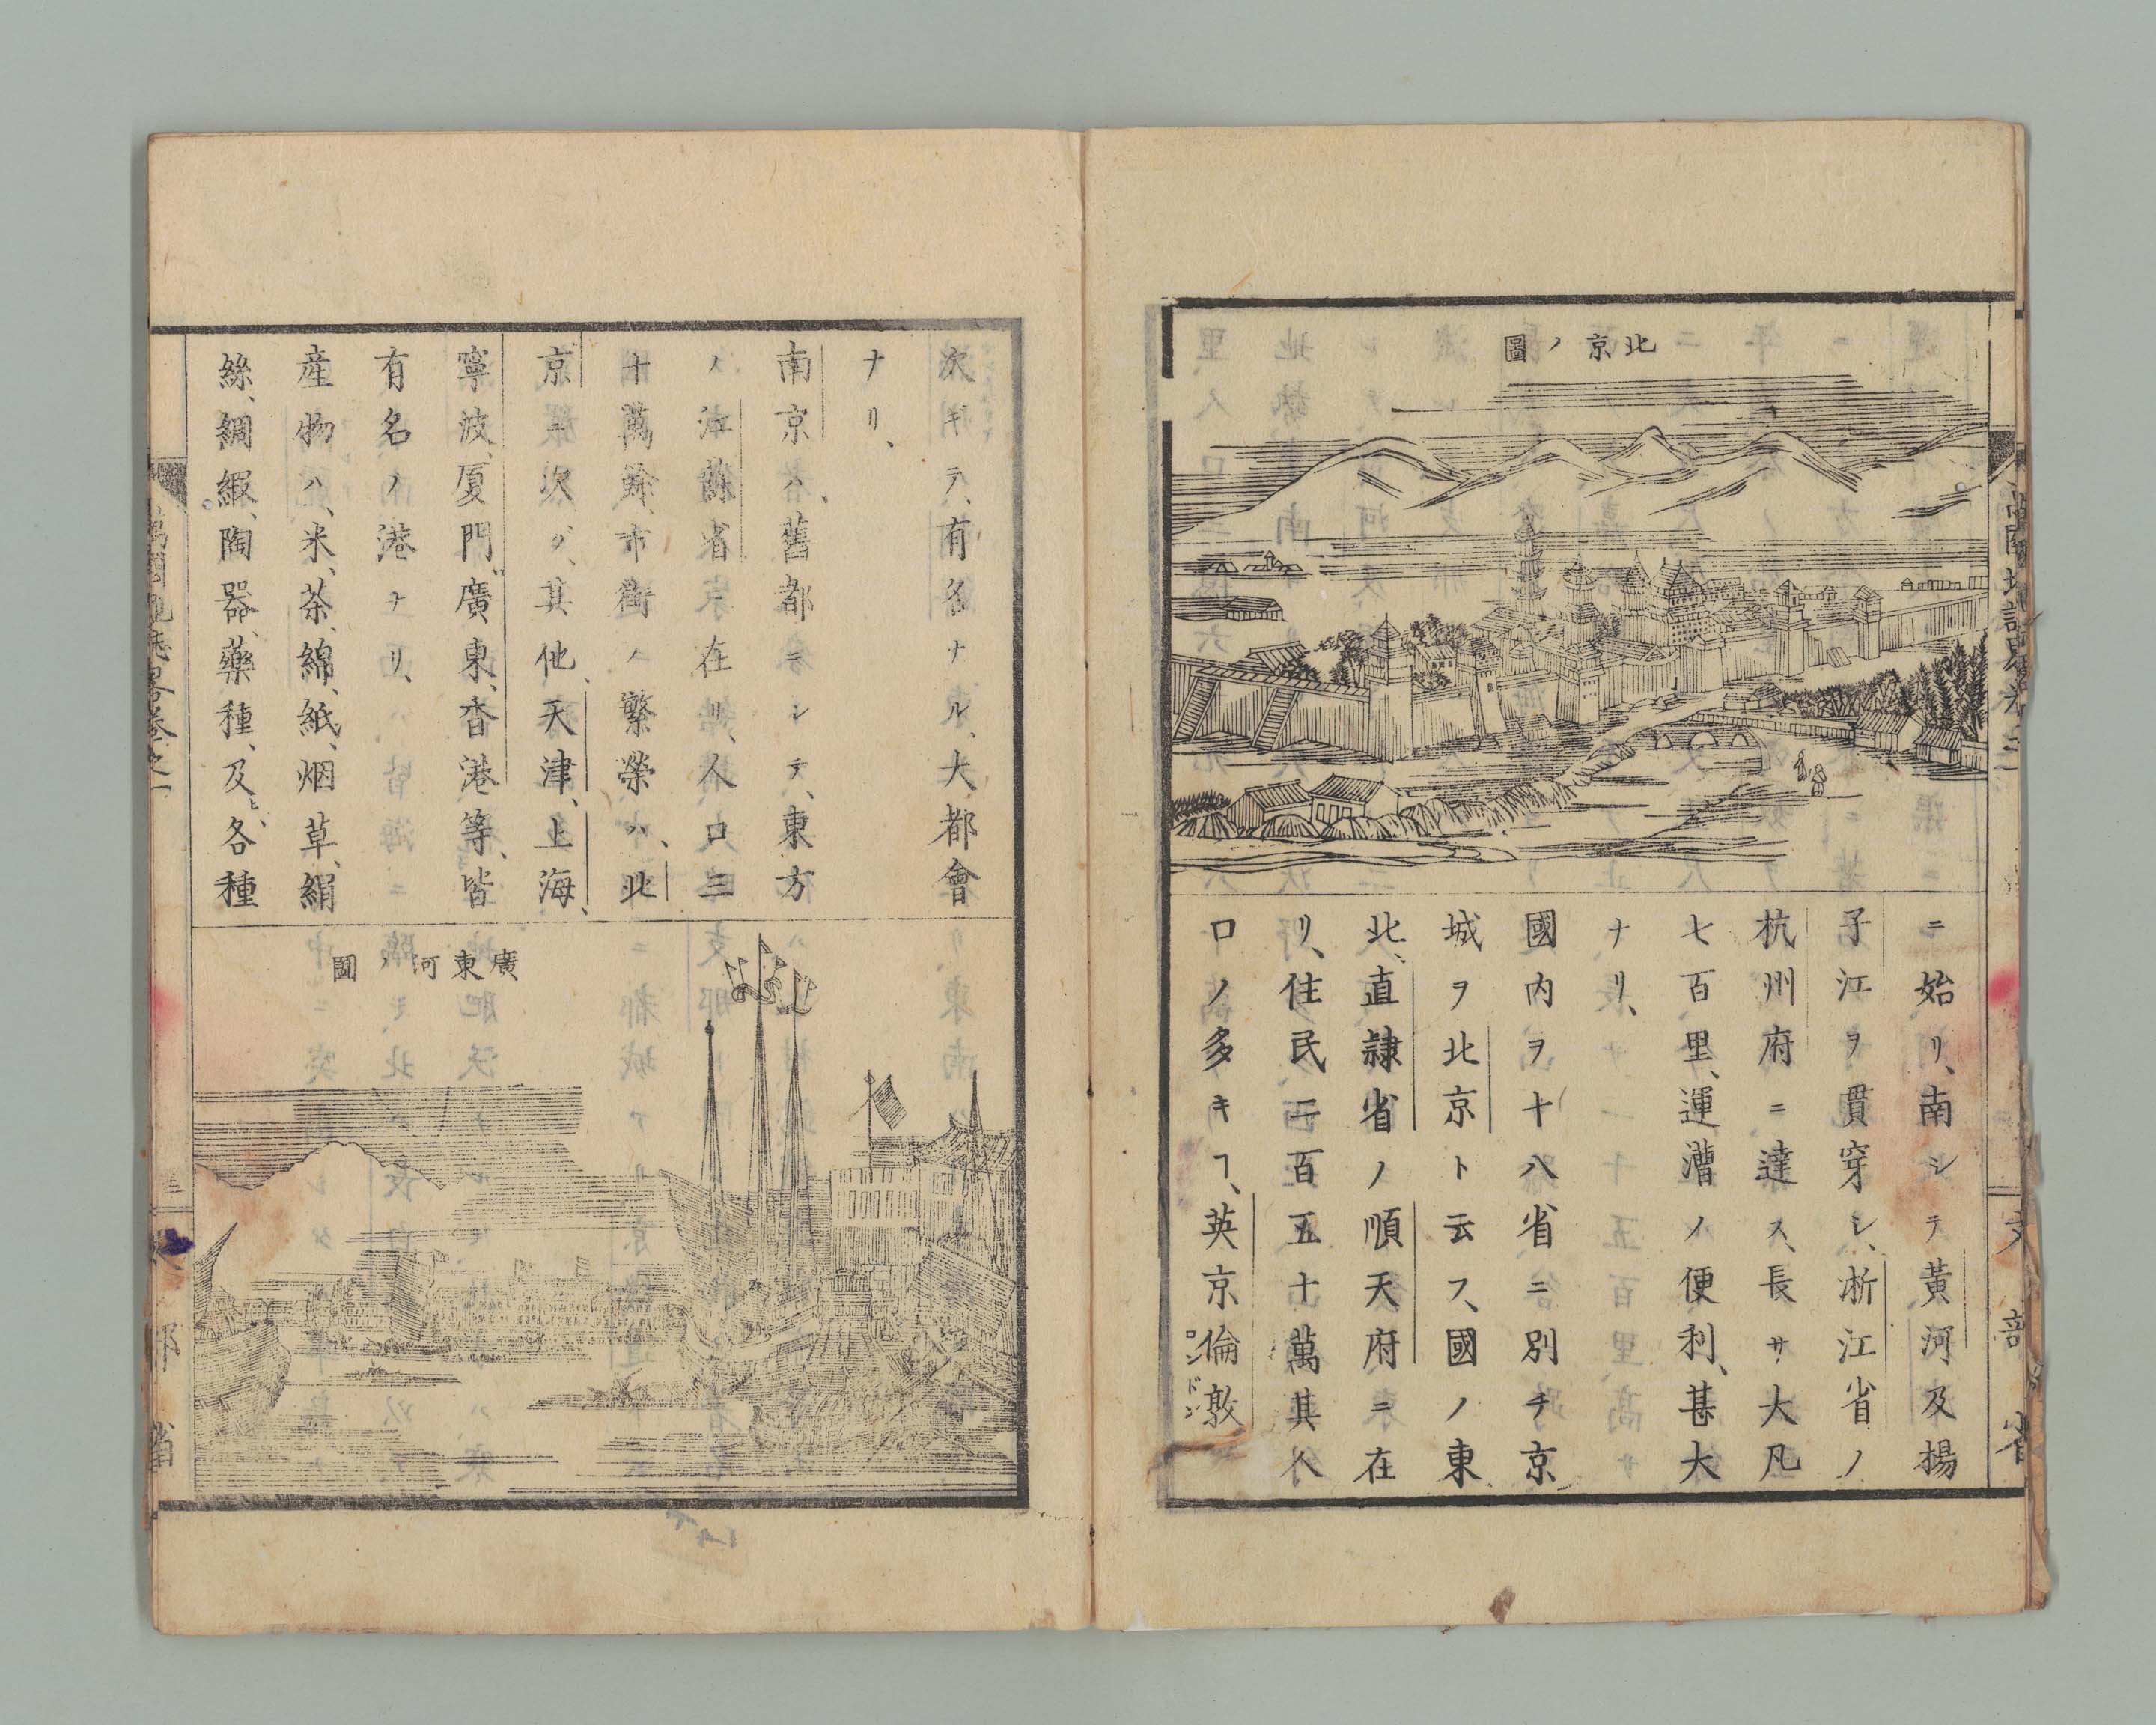 北京ノ圖
ニ始リ、南シテ黃河及揚
子江ヲ貫穿シ、浙江省ノ
杭州府ニ達ス、長サ大凡
七百里、運漕ノ便利、甚大
ナリ、
國内ヲ十八省ニ別チ京
城ヲ北京ト云フ、國ノ東
北、直隷省ノ順天府ニ在
リ、住民一百五十萬其人
口ノ多キヿ、英京倫敦
ロンドン
次ギテ、有名ナル、大都會
ナリ、
南京ハ、舊都ニシテ、東方
ノ江蘇省ニ在リ、人口三
十萬餘、市街ノ繁榮ハ、北
京ニ次グ、其他、天津、上海、
寧波、厦門、廣東、香港等、皆
有名ノ港ナリ、
産物ハ、米、茶、綿、紙、烟草、絹
絲、綢緞、陶器、藥種、及ヒ、各種
廣東河ノ圖
文部省